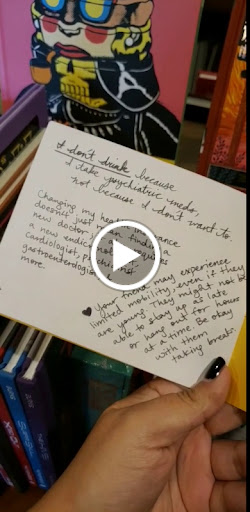 I don't drink because
I take psychiatric meds,
not because I don't want to.
Changing my health insurance
doesn't just
new doctor
a new endoc
Cardiologist,
gastroenterologi
more.
Your friend may experience
limited mobility even if they
are young. They might not be
able to stay up as late
or hang out for hours
at a time. Be okay
with them taking breaks.